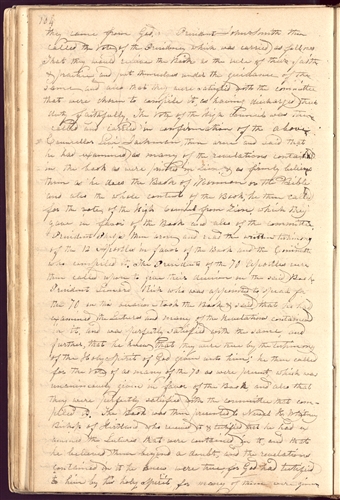 104
they came from God. President John Smith then
called the vote of the Presidency which was carried, as follows:
That they would receive the Book as the rule of their faith
& practice, and put themselves under the guidance of the
same and also that they were satisfied with the committee
that were chosen to compile it, as having discharged their
duty faithfully. The vote of the High Council was then
called and carried in confirmation of the above.
Councellor Levi Jackman then arose and said that
he has examined as many of the revelations contained
in the book as were printed in Zion, & as firmly believes
them as he does the Book of Mormon or the Bible
and also the whole contents of the Book, he then called
for the vote of the High Council from Zion, which they
gave in favor of the Book and also of the committee.
President Phelps then arose and read the written testimony
of the 12 Apostles in favor of the Book and the Committee
who compiled it. The Presidents of the 70 Apostles were
then called upon to give their decision on the said Book
President Leonard Rich who was appointed to speak for
the 70 on his occasion took the Book & said that he had
examined the Lectures and many of the Revelations contained
in it, and was perfectly satisfied with the same, and
further, that he knew that they were true by the testimony
of the Holy Spirit of God given unto him; he then called
for the vote of as many of the 70 as were present, which was
unanimously given in favor of the Book and also that
they were perfectly satisfied with the committee that com-
piled it. The Book was then presented to Newel K. Whitney
Bishop of Kirtland who received it & testified that he had ex-
amined the Lectures that were contained in it, and that
he believed them beyond a doubt, and the revelations
contained in it he knows were true, for God had testified
to him by his holy Spirit for many of them were given